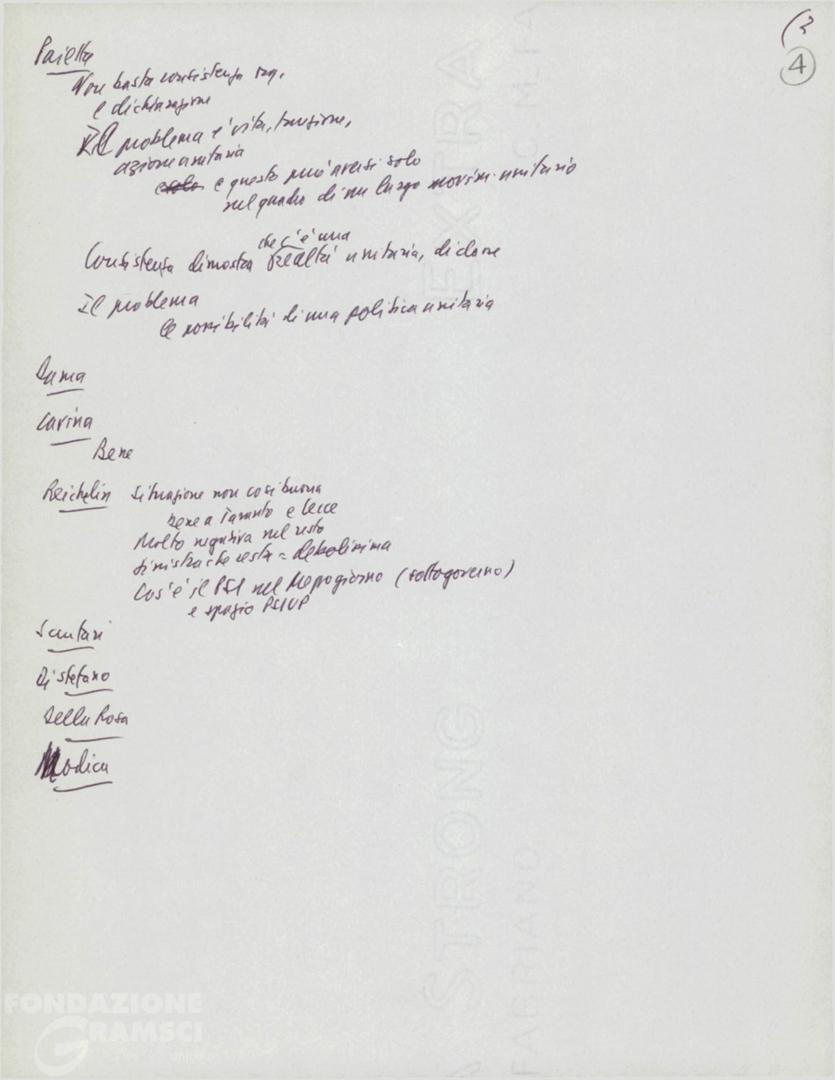 (3
4
Paietta
Non basta consistenza org.
e dichiarazione
Il problema è vita, funzione,
azione unitaria
e solo e questo può aversi solo
nel quadro di un largo movim. unitario
che c'è una
Consistenza dimostra realtà unitaria, di classe
Il problema
le possibilità di una politica unitaria
Lama
Cavina
Bene
Reichlin situazione non così buona
bene a Taranto e Lecce
Molto negativa nel resto
sinistra che resta = debolissima
Cos'è il PSI nel Mezzogiorno (sottogoverno)
e spazio PSIUP
Scutari
Di Stefano
Della Rosa
Modica
EXTRA STRONG
FABRIANO
FONDAZIONE
GRAMSCI